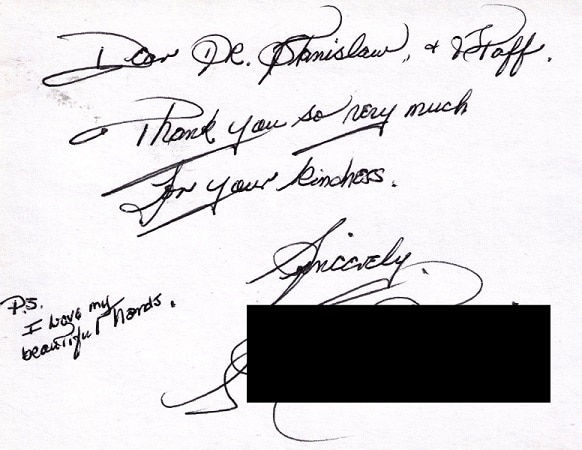 Dear Dr. Stanislaw, & Staff.
Thank you so very much
for your kindness.
Sincerely,
P.S.
I love my
beautiful hands.